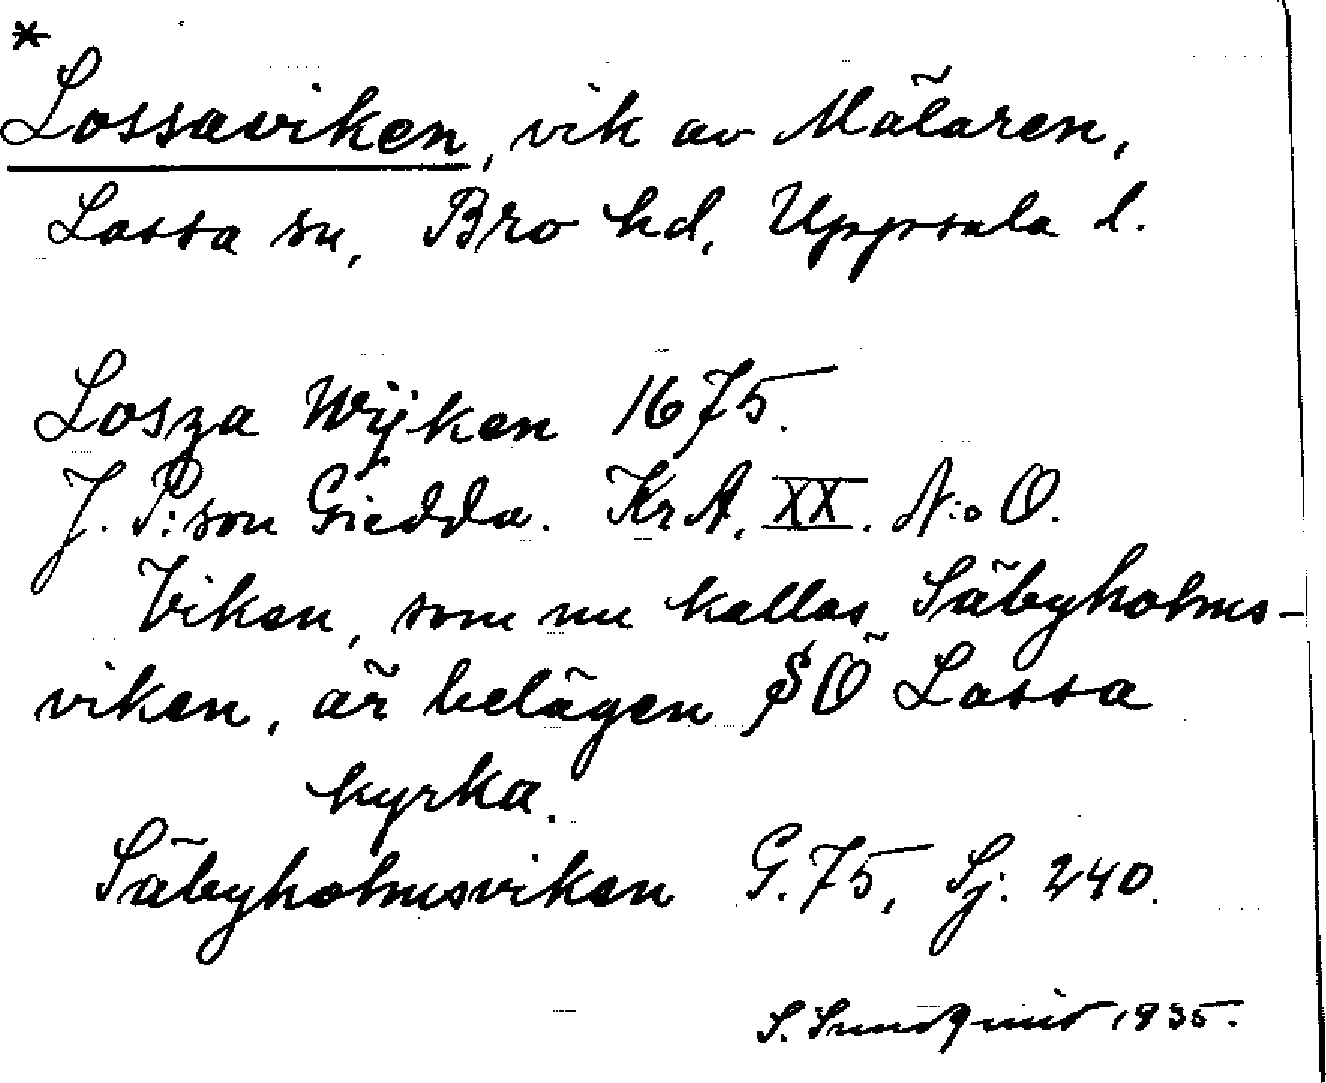 *
Lossaviken, vik av Mälaren,
Lossa sn, Bro hd, Uppsala l.
Losza Wijken 1675.
J. P:son Giedda. KrA, XX. N:o O.
Viken, som nu kallas Säbyholms-
viken, är belägen SÖ Lossa
kyrka.
Säbyholmsviken G. 75, Sj. 240.
S. Sundquist 1935.